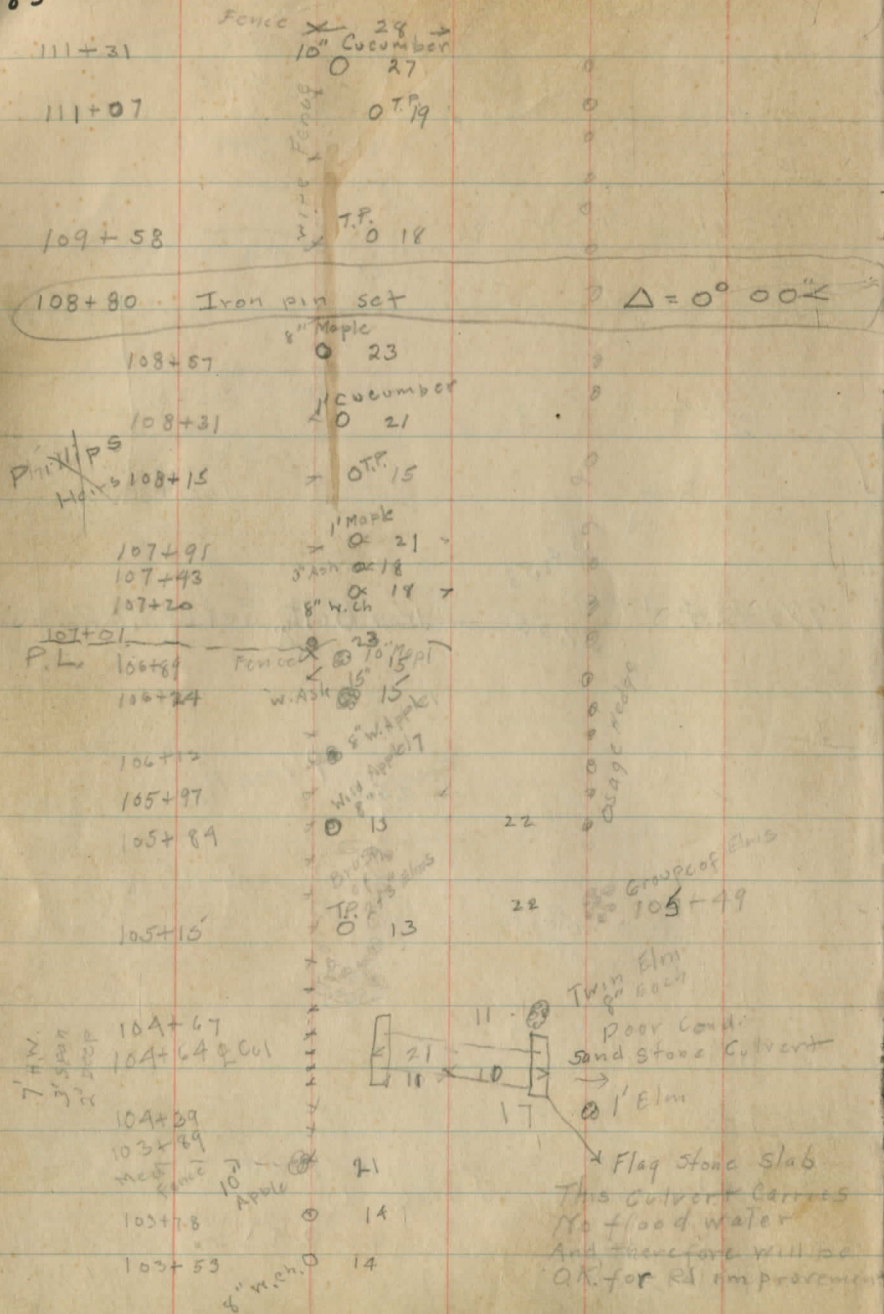 Fence 28
111+31 10" Cucumber
27
111+07 T.P. 19
Wire Fence
109+58 T.P. 18
108+80 Iron pin set Δ = 0° 00"
8" Maple
108+57 23
Cucumber
108+31 21
Phillips
108+15 T.P. 15
1' Maple
107+91 21
107+43 Ash 18
107+20 8" W.ch 18
107+01 23
P.L. 106+89 Fence 10" Mapl 15
15"
106+24 W. Ash 15
8" W. Apple
106+12 17
105+97 Wild Apple 8"
105+84 13 22
Osage Hedge
Brush of 2"-3" elms
Groupe of Elms
22 105+49
T.P.
105+15 13
Twin Elm
8" each
104+67 11
Poor Cond.
104+64 ℄ Cul 21 Sand Stone Culvert
11 10
7' H.W.
3' Span
2' Deep
104+39 17 1' Elm
103+89 21
Mesh Fence 10" Apple
Flag Stone Slab
This Culvert Carries
103+78 14 No flood water
And therefore will be
103+53 8" W.ch. 14
O.K. for Rd improvement